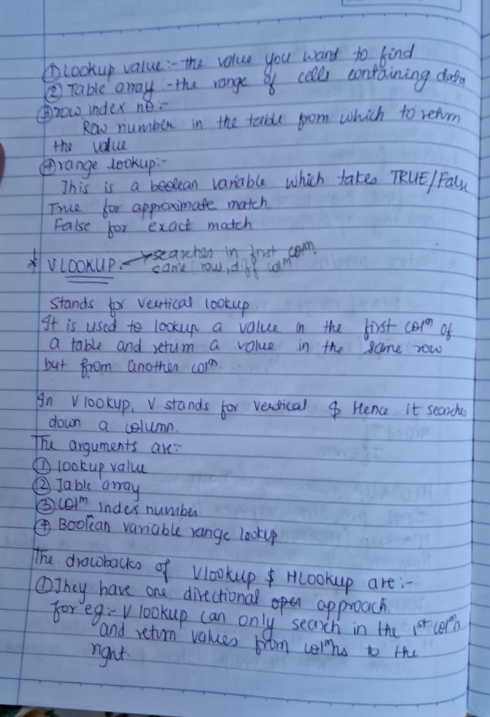 ① Lookup value:- the value you want to find
② Table array :- the range of cells containing data
③ row index no:-
Row number in the table from which to return
the value
④ range lookup:-
This is a boolean variable which takes TRUE/False
True for approximate match
False for exact match
* VLOOKUP:- → searches in first colm,
same row, diff colm
Stands for Vertical lookup.
It is used to lookup a value in the first colm of
a table and return a value in the same row
but from another colm.
In Vlookup, V stands for vertical & Hence it searches
down a column.
The arguments are:-
① lookup value
② Table array
③ colm index number
④ Boolean variable range lookup
The drawbacks of Vlookup & HLookup are:-
① They have one directional approach.
for eg:- Vlookup can only search in the 1st colmn
and return values from colmns to the
right.